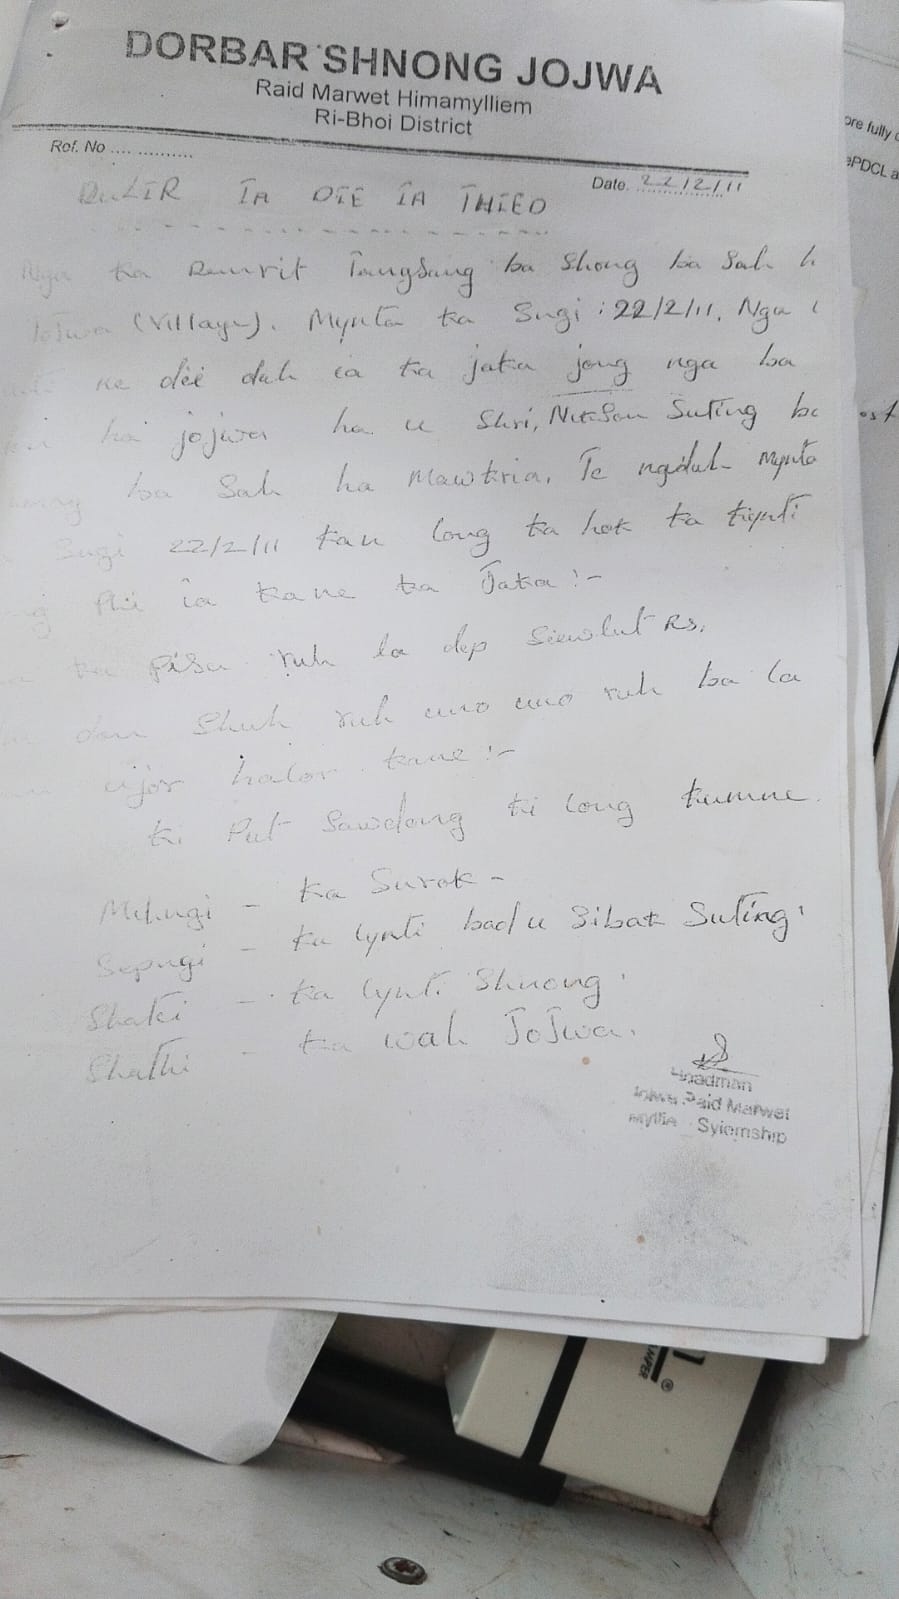 DORBAR SHNONG JOJWA
Raid Marwet Himamylliem
Ri-Bhoi District
Ref. No .... ..........
Date. 22/2/11
IA DIE IA THIED
Nga ka Tangsang ba Shong ba Sah h
Jojwa (Village). Mynta ka Sngi : 22/2/11, Nga
die duh ia ka jaka jong nga ba
ha jojwa ha u Shri, Nikson Suting ba
ba Sah ha Mawkria. Te ngiduh Mynta
Sngi 22/2/11 kan long ka hok ka
Phi ia kane ka Jaka :-
ka pisa ruh la dep Siewlut Rs.
don Shuh ruh uno uno ruh ba la
halor kane :-
ki Put Sawdong ki long kumne.
Mihngi - ka Surok -
Sepngi - ka lynti bad u Sibak Suting.
Shatei - ka lynti Shnong.
Shathi - ka wah JoJwa.
Headman
Raid Marwet
Syiemship
ore fully
ePDCL a
ost